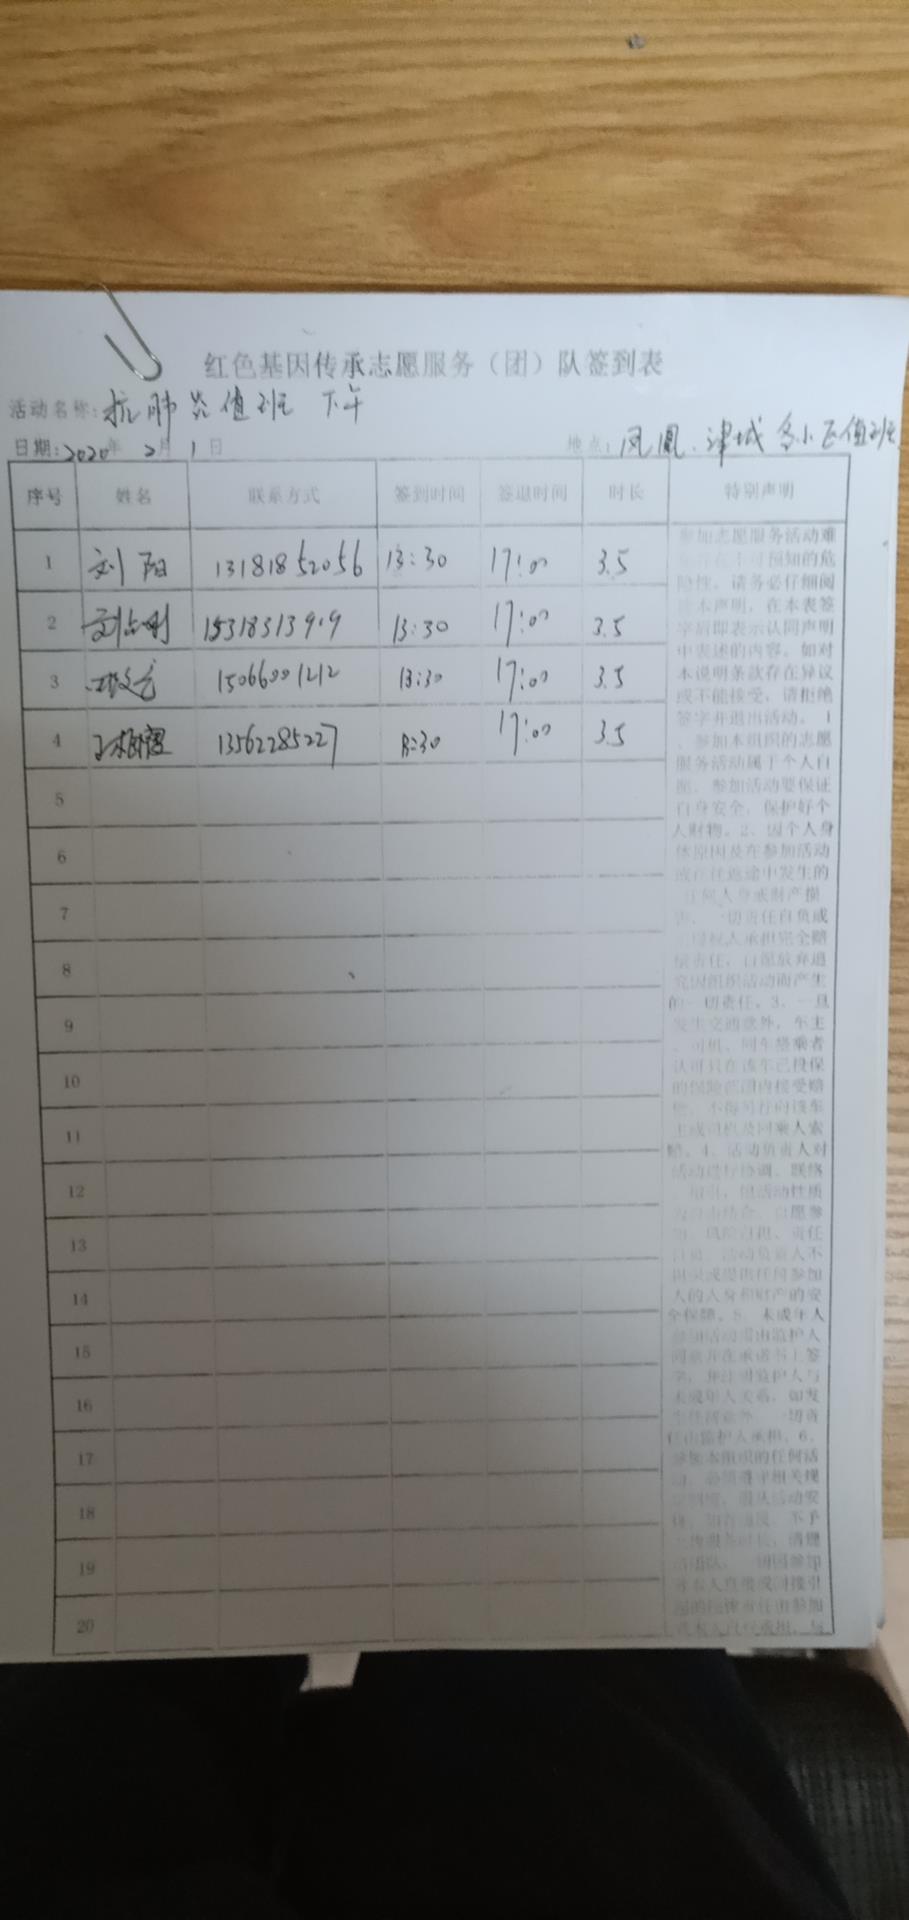 红色基因传承志愿服务（团）队签到表
活动名称：抗肺炎值班 下午
日期：2020年 2月 1日 地点：凤凰、津城各小区值班
序号 姓名 联系方式 签到时间 签退时间 时长 特别声明
1 刘阳 13181852056 13:30 17:00 3.5
2 153183139 13:30 17:00 3.5
3 15066001212 13:30 17:00 3.5
4 13562285227 13:30 17:00 3.5
5
6
7
8
9
10
11
12
13
14
15
16
17
18
19
20
参加志愿服务活动难
预知的危
险性，请务必仔细阅
本声明，在本表签
字后即表示认同声明
中表述的内容。如对
本说明条款存在异议
或不能接受，请拒绝
签字并退出活动。1
、参加本组织的志愿
服务活动属于个人自
愿，参加活动要保证
自身安全，保护好个
人财物。2、因个人身
体原因及在参加活动
或在往返途中发生的
任何人身或财产损
害，一切责任自负或
人承担完全赔
偿责任，自愿放弃追
究因组织活动而产生
的一切责任。3、一旦
发生交通意外，车主
、司机、同车搭乘者
认可只在该车已投保
的保险范围内接受赔
偿，不得另行向该车
主或司机及同乘人索
赔。4、活动负责人对
活动进行协调、联络
，但活动性质
为自由结合、自愿参
加、风险自担、责任
自负，活动负责人不
担或提供任何参加
人的人身和财产的安
全保障。5、未成年人
参加活动需由监护人
同意并在承诺书上签
字，并注明监护人与
未成年人关系，如发
生任何意外，一切责
任由监护人承担。6、
参加本组织的任何活
动，必须遵守相关规
，服从活动安
不予
服务时长，清理